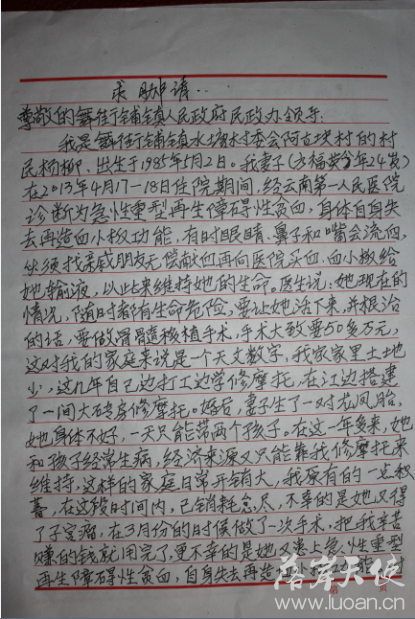 求助申请..
尊敬的舞街铺镇人民政府民政办领导:
我是舞街铺镇水塘村委会阿古块村的村
民杨柳、出生于1985年5月2日。我妻子(方福芬年24岁)
在2013年4月17一18日住院期间,经云南第一人民医院
诊断为急性重型再生障碍性贫血,身体自身失
去再造血小板功能,有时眼睛、鼻子和嘴会流血,
必须找亲戚朋友无偿献血再向医院买血、血小板给
她输液,以此来维持她的生命。医生说:她现在的
情况,随时都有生命危险,要让她活下来,并根治
的话,要做骨髓移植手术,手术大致要50多万元,
这对我的家庭来说是一个天文数字,我家家里土地
少,这几年自己边打工边学修摩托,在江边搭建
了一间大砖房修摩托。婚后,妻子生了一对龙凤胎,
她身体不好,一天只能带两个孩子。在这一年多来,她
和孩子经常生病,经济来源又只能靠我修摩托来
维持,这样的家庭日常开销大,我原有的一点积
蓄,在这段时间内,已销耗怠尽,不幸的是她又得
了子宫瘤,在3月份的时候做了一次手术,把我辛苦
赚的钱就用完了,更不幸的是她又患上急性重型
再生障碍性贫血,自身失去再造血小板功能
落岸天使
www.luoan.cn